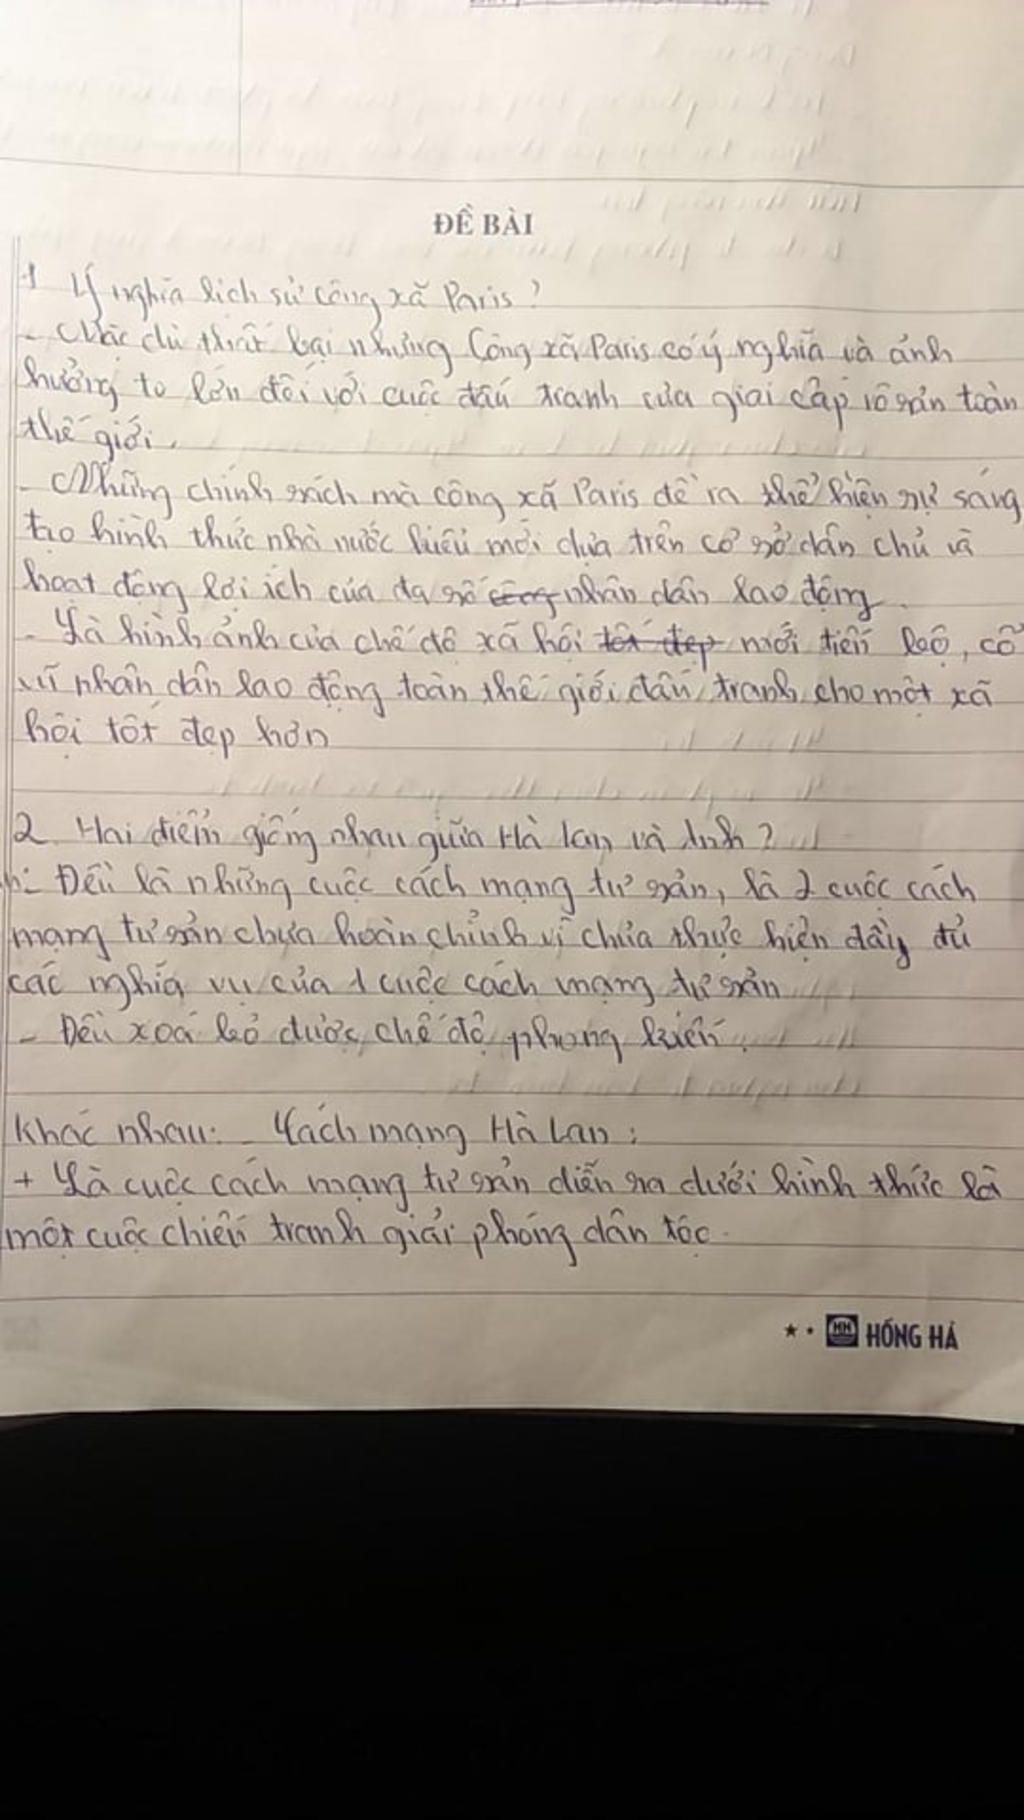 ĐỀ BÀI
1 Ý nghĩa lịch sử công xã Paris?
- Mặc dù thất bại nhưng Công xã Paris có ý nghĩa và ảnh
hưởng to lớn đối với cuộc đấu tranh của giai cấp vô sản toàn
thế giới.
- Những chính sách mà công xã Paris đề ra thể hiện sự sáng
tạo hình thức nhà nước kiểu mới dựa trên cơ sở dân chủ và
hoạt động lợi ích của đa số công nhân dân lao động.
- Là hình ảnh của chế độ xã hội tốt đẹp mới tiến bộ, cổ
vũ nhân dân lao động toàn thế giới đấu tranh cho một xã
hội tốt đẹp hơn
2 Hai điểm giống nhau giữa Hà Lan và Anh?
- Đều là những cuộc cách mạng tư sản, là 2 cuộc cách
mạng tư sản chưa hoàn chỉnh vì chưa thực hiện đầy đủ
các nghĩa vụ của 1 cuộc cách mạng tư sản
- Đều xoá bỏ được chế độ phong kiến.
Khác nhau: - Cách mạng Hà Lan:
+ Là cuộc cách mạng tư sản diễn ra dưới hình thức là
một cuộc chiến tranh giải phóng dân tộc.
HH HỒNG HÀ